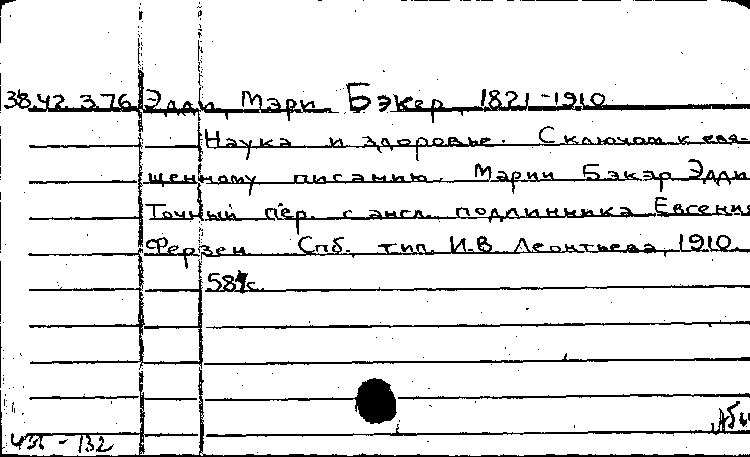 38.42.3.76 Эдди, Мэри Бэкер, 1821-1910
Наука и здоровье. С ключом к свя-
щенному писанию. Мэрии Бэкэр Эдди
Точный пер. с англ. подлинника Евгения
Ферзен Спб, тип. И.В. Леонтьева, 1910.
587с.
436-132